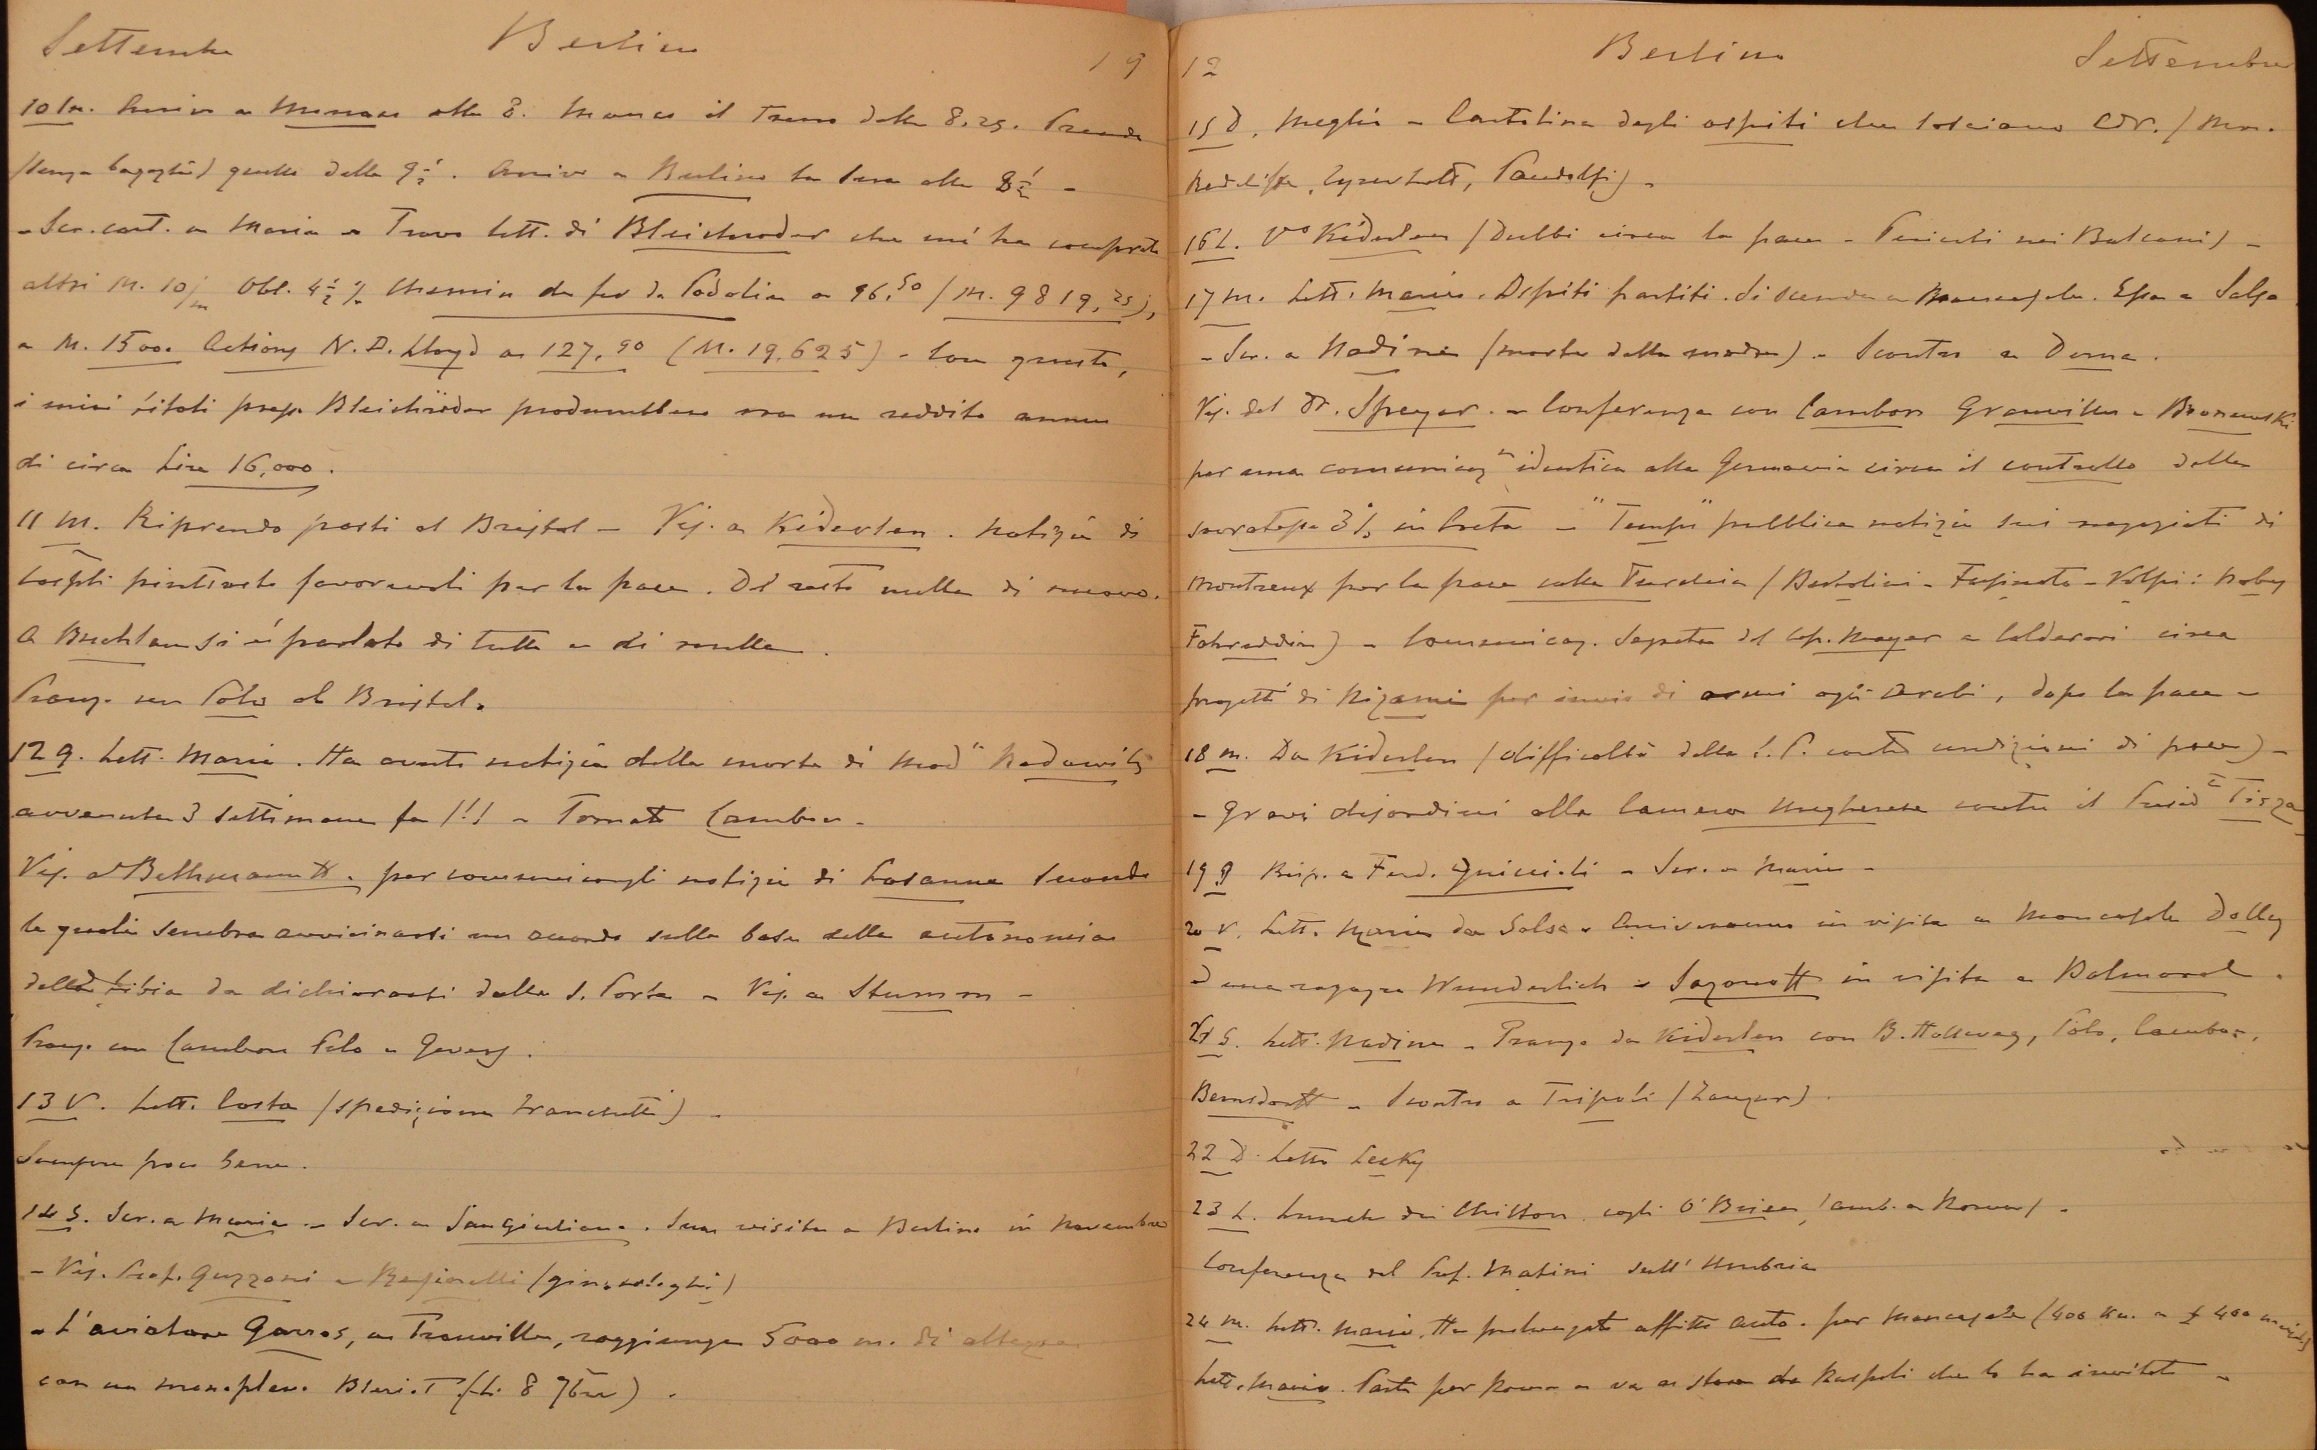 Settembre Berlino 19
10 M. Arrivo a Monaco alle 8. Manco il treno delle 8.25. Prendo
(senza bagaglio) quello delle 9½. Arrivo a Berlino la sera alle 8½ -
- Scr. cart. a Maria - Trovo lett. di Bleichroder che mi ha comprato
altri M. 10/m Obl. 4½ % Chemin de fer de Podolie a 96,50 (M. 9819,25),
e M. 15000 Actions N. D. Lloyd a 127,90 (M. 19,625) - Con questi,
i miei titoli presso Bleichröder produrrebbero ora un reddito annuo
di circa Lire 16,000.
11 M. Riprendo pasti al Bristol - Vis. a Kiderlen. Notizie di
piuttosto favorevoli per la pace. Del resto nulla di nuovo.
A Buchlau si è parlato di tutto e di nulla.
Pranz. con Polo al Bristol.
12 G. Lett. Maria. Ha avuto notizia della morte di Mad. Radowitz
avvenuta 3 settimane fa (!! - Tornato Cambon -
Vis. a Bethmann H. per comunicargli notizie di Losanna secondo
le quali sembra avvicinarsi un accordo sulla base della autonomia
della Libia da dichiararsi dalla S. Porta - Vis. a Stumm -
Pranz. con Cambon Polo e Gevers.
13 V. Lett. Costa (spedizione Franchetti) -
Sempre poco bene.
14 S. Scr. a Maria - Scr. a Sangiuliano. Sua visita a Berlino in novembre
- Vis. Prof. Guzzoni e (ginecologhi)
- L'aviatore Garros, a Trouville, raggiunge 5000 m. di altezza
con un monoplano Bleriot (L. 8
12 Berlino Settembre
15 D. Meglio - Cartolina degli ospiti che lasciano (Mrs.
Radcliffe, Pandolfi) -
16 L. Vo Kiderlen (Dubbi circa la pace - Pericoli nei Balcani) -
17 M. Lett. Maria. Ospiti partiti. Si scende a Moncasale. Essa a Salsa
- Scr. a Nadine (morte della madre) - Scontro a Derna.
Vis. del Dr. Speyer - Conferenza con Cambon Granville e Bronewski
per una comunicaz. identica alla Germania circa il controllo della
sovratassa 3% in Creta - "Temps" pubblica notizie sui negoziati di
Montreux per la pace colla Turchia (Bertolini - Fusinato - Volpi: Naby
Fahreddin) - Comunicaz. segreta del Cap. Mayer a Calderari circa
progetti di Nizami per invio di armi agli Arabi, dopo la pace -
18 M. Da Kiderlen (difficoltà della S. P. contro condizioni di pace) -
- Gravi disordini alla Camera Ungherese contro il Presid. Tisza
19 G Risp. a Ferd. - Scr. a Maria -
20 V. Lett. Maria da Salsa - Arriveranno in visita a Moncasale Dolly
ed una ragazza Wunderlich - Sazonoff in visita a Balmoral.
21 S. Lett. Nadine - Pranzo da Kiderlen con B. Hollweg, Polo, Cambon,
Bernsdorff - Scontro a Tripoli (Zanzur).
22 D. Lett.
23 L. Lunch dai Chilton cogli O'Brien (amb. a Roma) -
Conferenza del Prof. Matini sull' Umbria
24 M. Lett. Maria. Ha prolungato affitto auto. per Moncasale (400 Km. a £ 400
Lett. Mario. Parte per Roma e va a stare da Ruspoli che lo ha invitato -